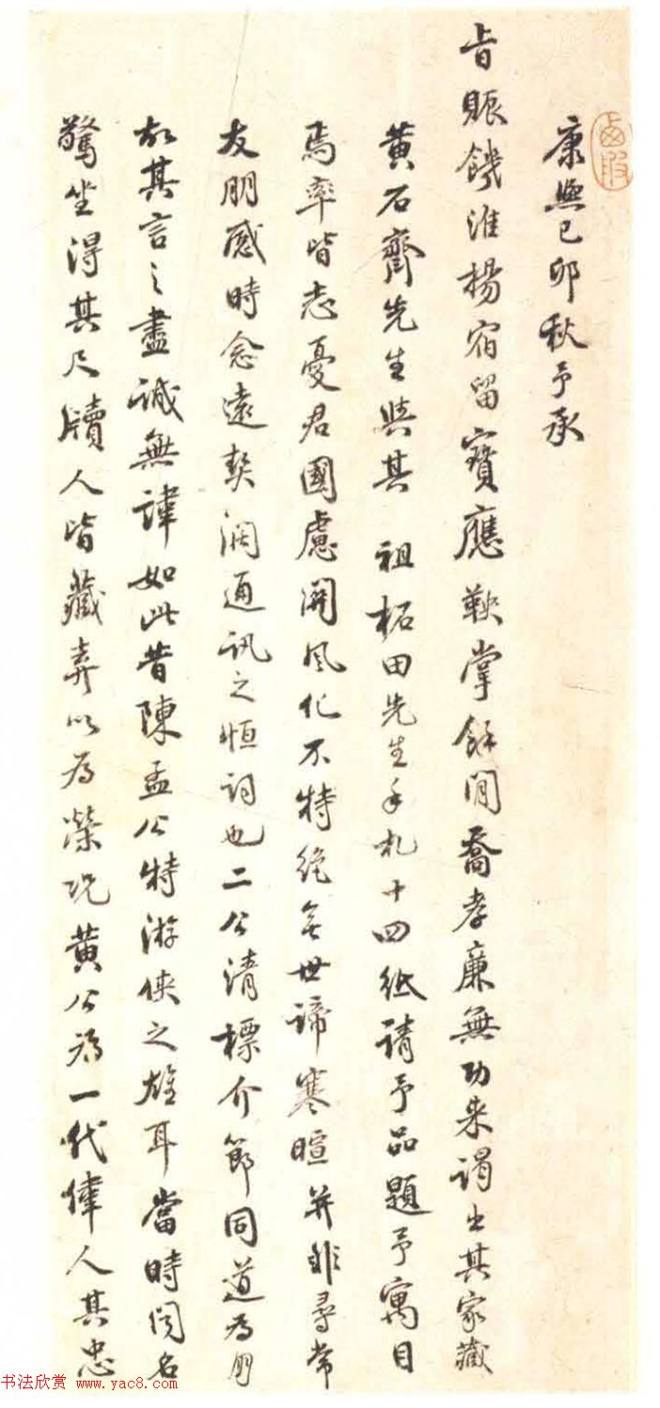 康熙己卯秋予承
旨賑饑淮楊宿留寶應鞅掌餘閒喬孝廉無功来謁出其家藏
黃石齋先生與其祖柘田先生手札十四紙請予品題予寓目
焉率皆志憂君國慮關風化不特絕無世諦寒暄并非尋常
友朋感時念遠契闊通訊之恒詞也二公清標介節同道為朋
故其言之盡誠無諱如此昔陳孟公特游俠之雄耳當時聞名
驚坐得其尺牘人皆藏弆以為榮况黃公為一代偉人其忠
书法欣赏 www.yac8.com